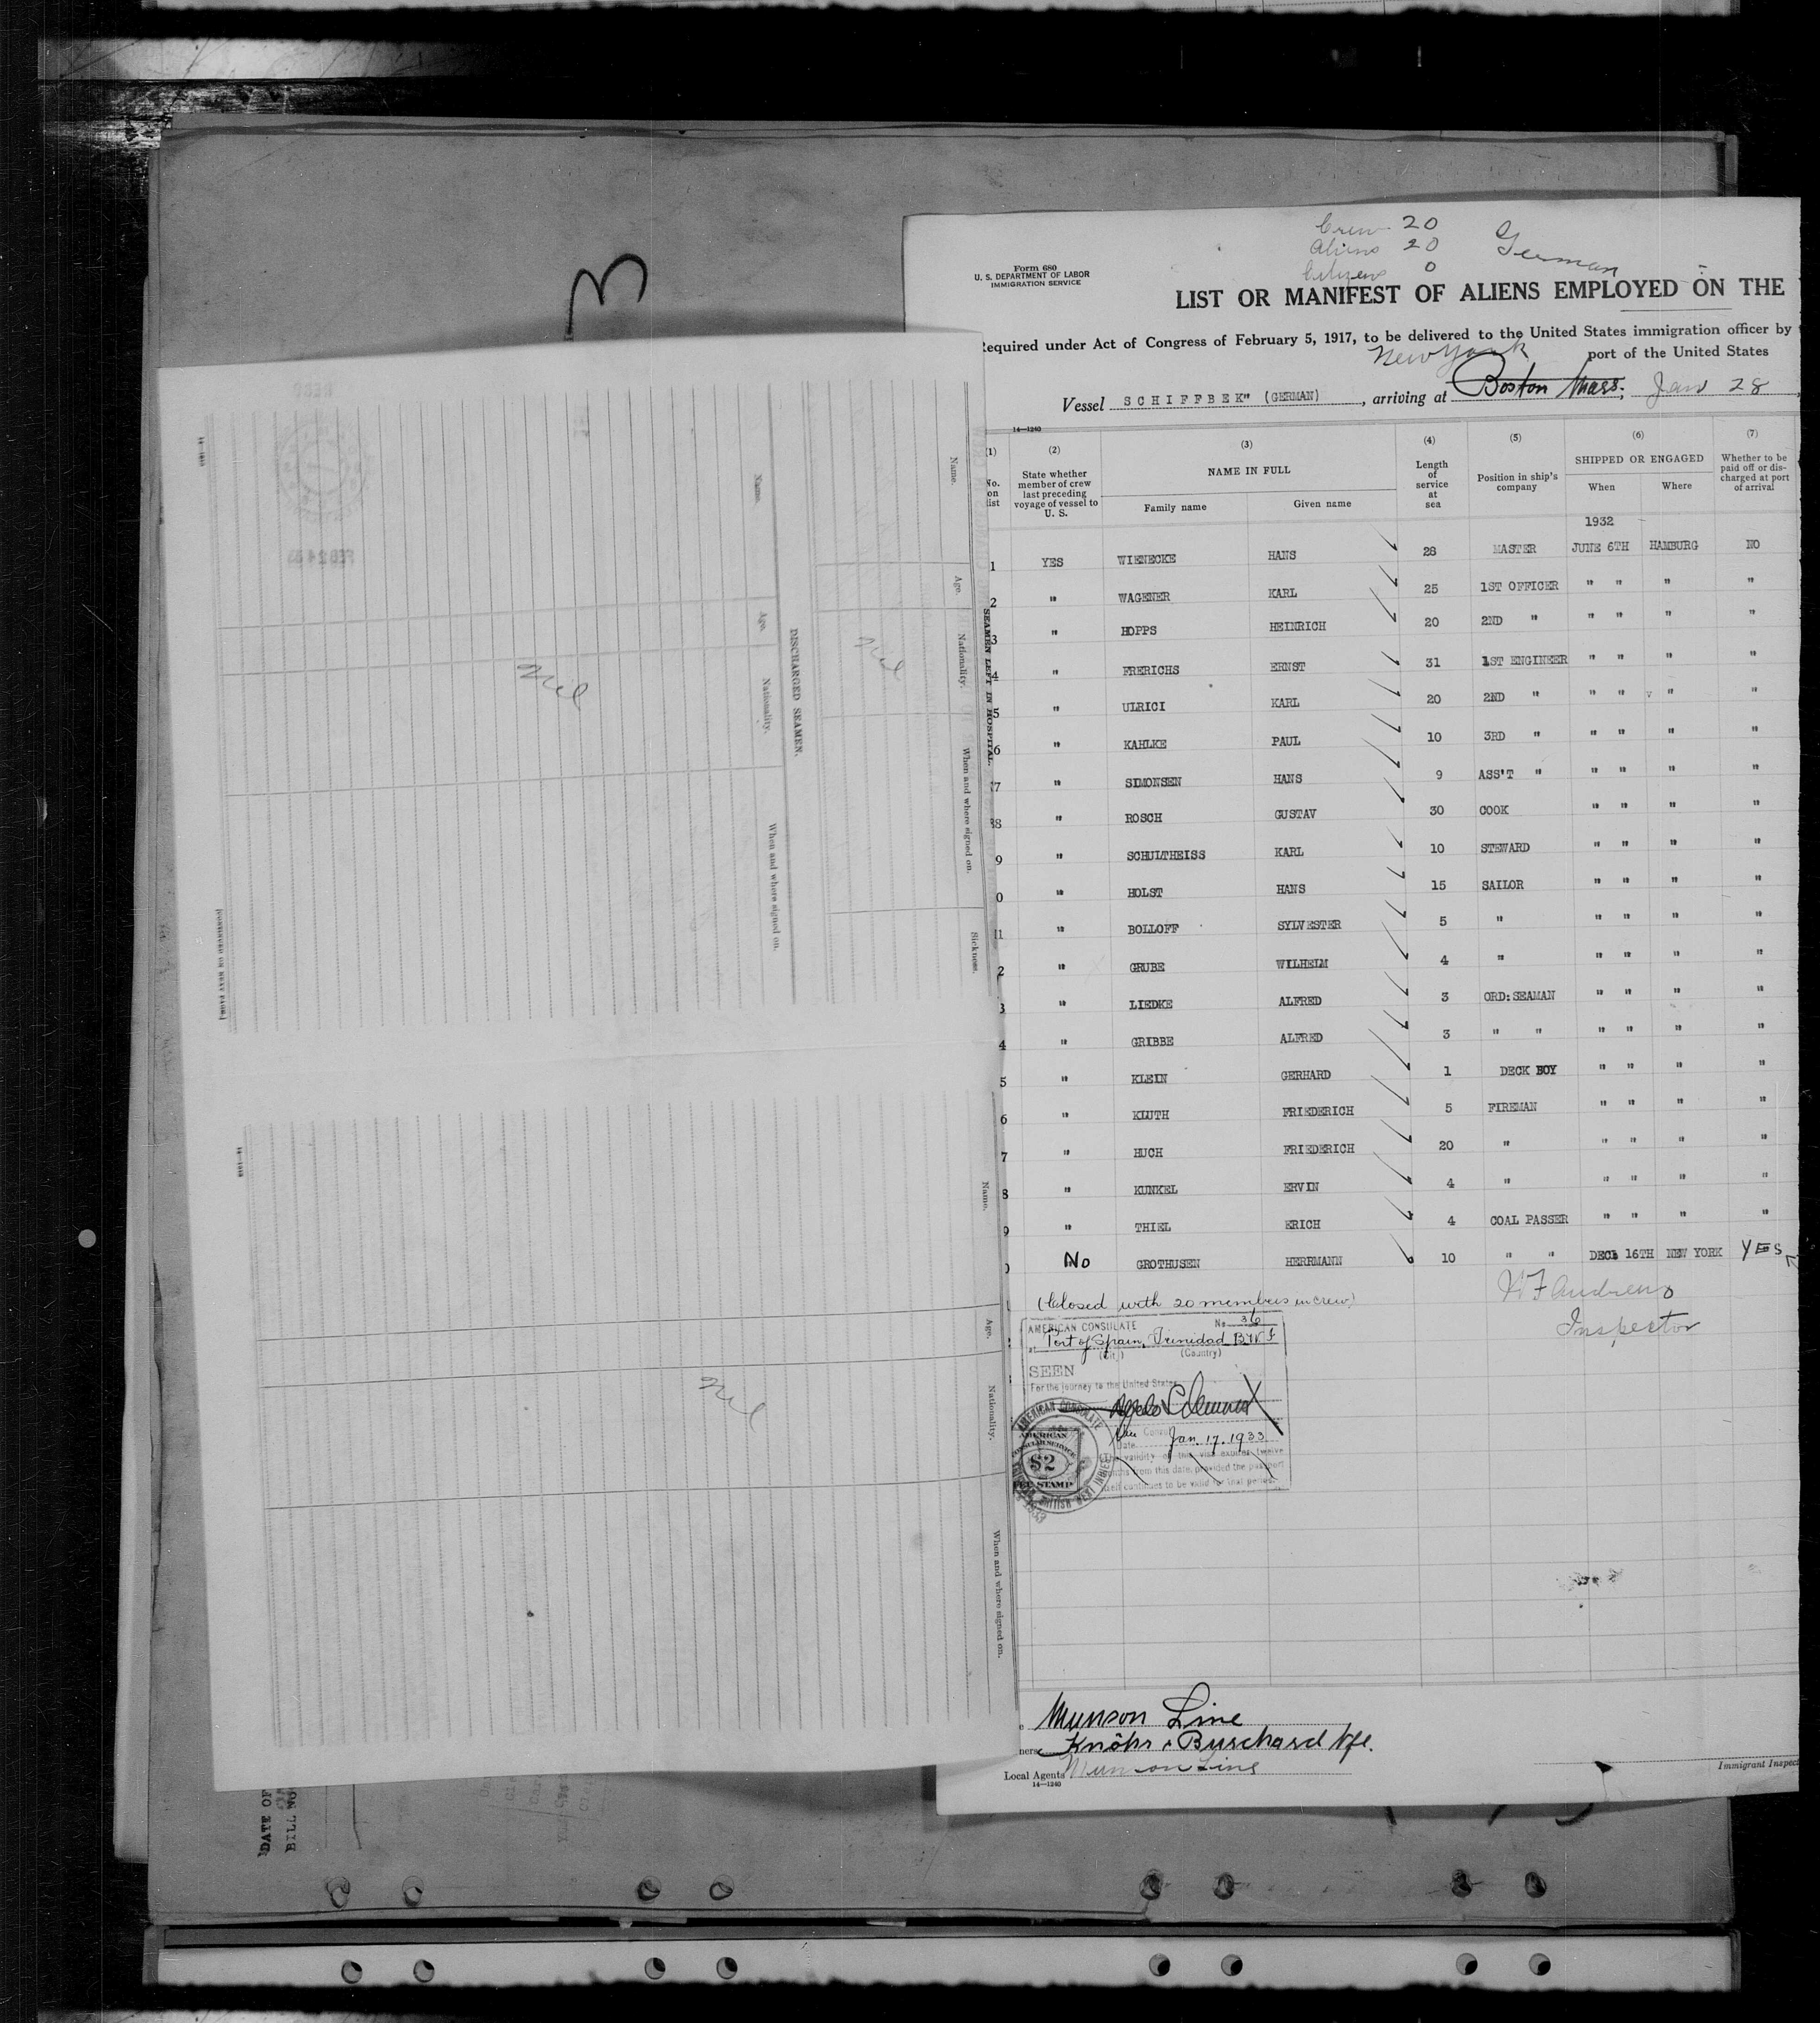 Crew 20
Aliens 20
Citizens 0
German
Form 680
U. S. DEPARTMENT OF LABOR
IMMIGRATION SERVICE
LIST OR MANIFEST OF ALIENS EMPLOYED ON THE
Required under Act of Congress of February 5, 1917, to be delivered to the United States immigration officer by
New York port of the United States
Vessel SCHIFFBEK" (GERMAN), arriving at Boston Mass., Jan 28
14—1240
(1) (2) (3) (4) (5) (6) (7)
No. on list
State whether member of crew last preceding voyage of vessel to U. S.
NAME IN FULL
Family name Given name
Length of service at sea
Position in ship's company
SHIPPED OR ENGAGED
When Where
Whether to be paid off or discharged at port of arrival
1932
1 YES WIENECKE HANS 28 MASTER JUNE 6TH HAMBURG NO
2 " WAGENER KARL 25 1ST OFFICER " " " "
3 " HOPPS HEINRICH 20 2ND " " " " "
4 " FRERICHS ERNST 31 1ST ENGINEER " " " "
5 " ULRICI KARL 20 2ND " " " " "
6 " KAHLKE PAUL 10 3RD " " " " "
7 " SIMONSEN HANS 9 ASS'T " " " " "
8 " ROSCH GUSTAV 30 COOK " " " "
9 " SCHULTHEISS KARL 10 STEWARD " " " "
0 " HOLST HANS 15 SAILOR " " " "
11 " BOLLOFF SYLVESTER 5 " " " " "
2 " GRUBE WILHELM 4 " " " " "
3 " LIEDKE ALFRED 3 ORD:SEAMAN " " " "
4 " GRIBBE ALFRED 3 " " " " " "
5 " KLEIN GERHARD 1 DECK BOY " " " "
6 " KLUTH FRIEDERICH 5 FIREMAN " " " "
7 " HUCH FRIEDERICH 20 " " " " "
8 " KUNKEL ERVIN 4 " " " " "
9 " THIEL ERICH 4 COAL PASSER " " " "
No GROTHUSEN HERRMANN 10 " " DEC. 16TH NEW YORK YES
(Closed with 20 members in crew)
Andrews
Inspector
AMERICAN CONSULATE No 36
at Port of Spain, Trinidad B.W.I.
(City) (Country)
SEEN
For the journey to the United States
Date Jan. 17, 1933
The validity of this visa expires twelve
months from this date, provided the passport
itself continues to be valid for that period.
AMERICAN CONSULATE
AMERICAN
CONSULAR SERVICE
$2
FEE STAMP
BRITISH WEST INDIES
Munson Line
Knöhr & Burchard Nfl.
Local Agents Munson Line
14—1240
Immigrant Inspec
SEAMEN LEFT IN HOSPITAL.
Name. Age. Nationality. When and where signed on. Sickness.
Nil
DISCHARGED SEAMEN.
Name. Age. Nationality. When and where signed on.
Nil
Name. Age. Nationality. When and where signed on.
Nil
DATE OF
BILL NO